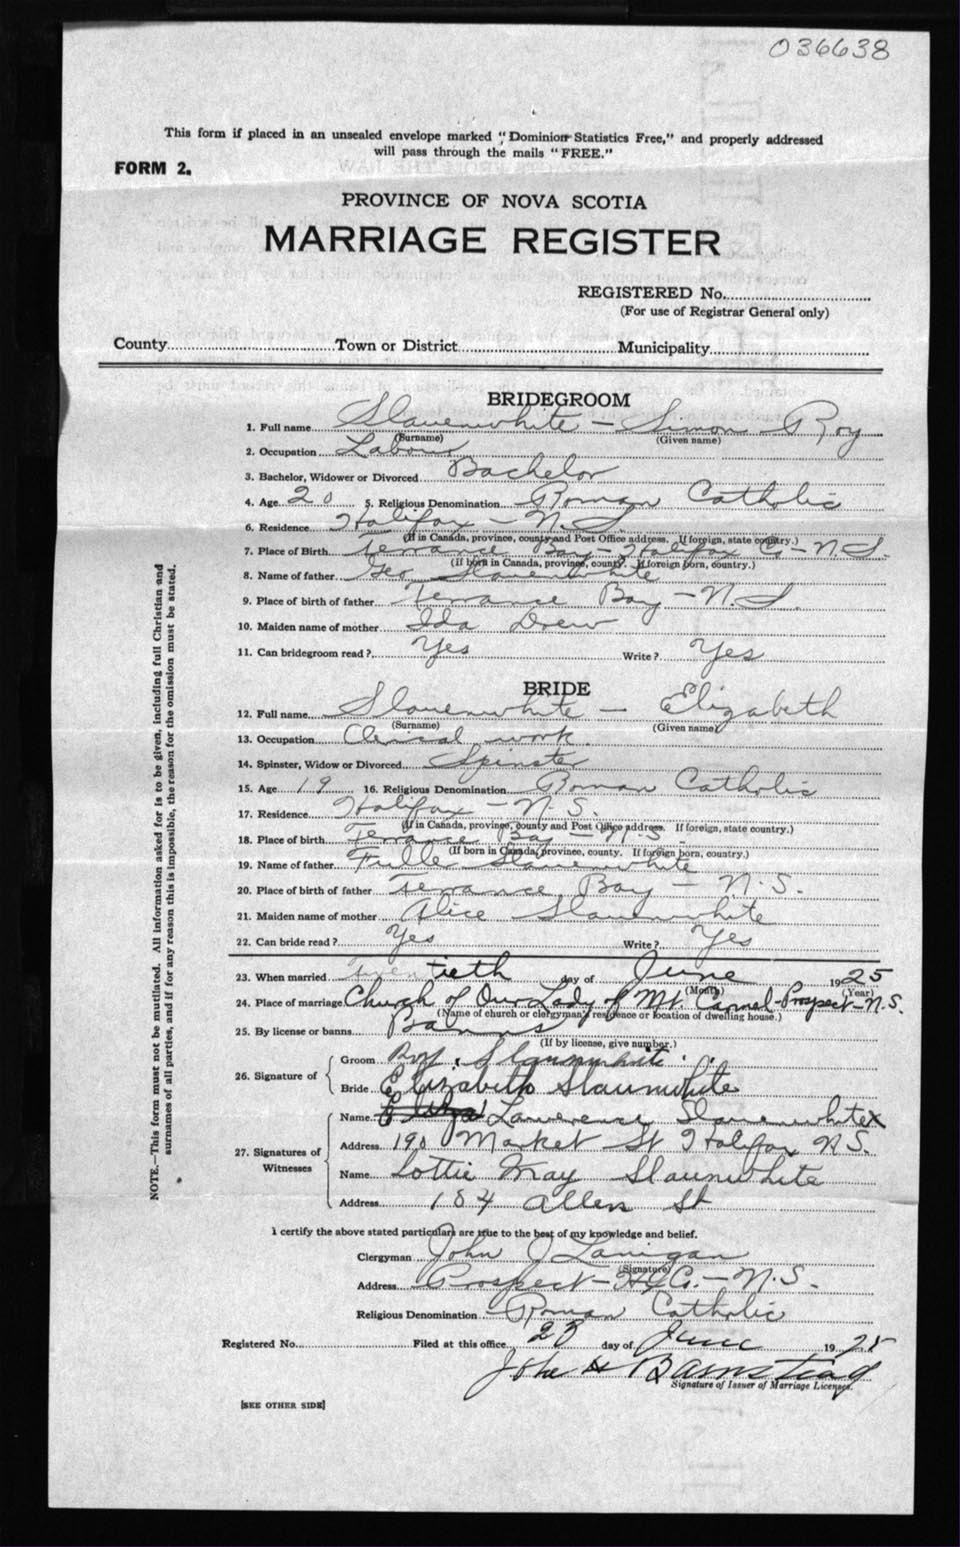 036638
This form if placed in an unsealed envelope marked "Dominion Statistics Free," and properly addressed
will pass through the mails "FREE."
FORM 2.
PROVINCE OF NOVA SCOTIA
MARRIAGE REGISTER
REGISTERED No.
(For use of Registrar General only)
County Town or District Municipality
BRIDEGROOM
1. Full name Slauenwhite - Simon Roy
(Surname) (Given name)
2. Occupation Labour
3. Bachelor, Widower or Divorced Bachelor
4. Age 20 5. Religious Denomination Roman Catholic
6. Residence Halifax - N.S.
(If in Canada, province, county and Post Office address. If foreign, state country.)
7. Place of Birth Terrance Bay - Halifax Co - N.S.
(If born in Canada, province, county. If foreign born, country.)
8. Name of father Geo Slauenwhite
9. Place of birth of father Terrance Bay - N.S.
10. Maiden name of mother Ida Drew
11. Can bridegroom read? Yes Write? Yes
BRIDE
12. Full name Slauenwhite - Elizabeth
(Surname) (Given name)
13. Occupation Clerical work
14. Spinster, Widow or Divorced Spinster
15. Age 19 16. Religious Denomination Roman Catholic
17. Residence Halifax - N.S.
(If in Canada, province, county and Post Office address. If foreign, state country.)
18. Place of birth Terrance Bay - N.S.
(If born in Canada, province, county. If foreign born, country.)
19. Name of father Fuller Slauenwhite
20. Place of birth of father Terrance Bay - N.S.
21. Maiden name of mother Alice Slauenwhite
22. Can bride read? Yes Write? Yes
23. When married Twentieth day of June 1925
(Month) (Year)
24. Place of marriage Church of Our Lady of Mt. Carmel - Prospect - N.S.
(Name of church or clergyman's residence or location of dwelling house.)
25. By license or banns Banns
(If by license, give number.)
26. Signature of Groom Roy Slaunwhite
Bride Elizabeth Slaunwhite
27. Signatures of Witnesses Name Lawrence Slauenwhite x
Address 190 Market St Halifax N.S.
Name Lottie May Slaunwhite
Address 184 Allen St
I certify the above stated particulars are true to the best of my knowledge and belief.
Clergyman John J Lanigan
(Signature)
Address Prospect - Hfx Co. - N.S.
Religious Denomination Roman Catholic
Registered No. Filed at this office 23 day of June 1925
John H Barnstead
Signature of Issuer of Marriage Licenses.
[SEE OTHER SIDE]
NOTE.—This form must not be mutilated. All information asked for is to be given, including full Christian and
surnames of all parties, and if for any reason this is impossible, the reason for the omission must be stated.